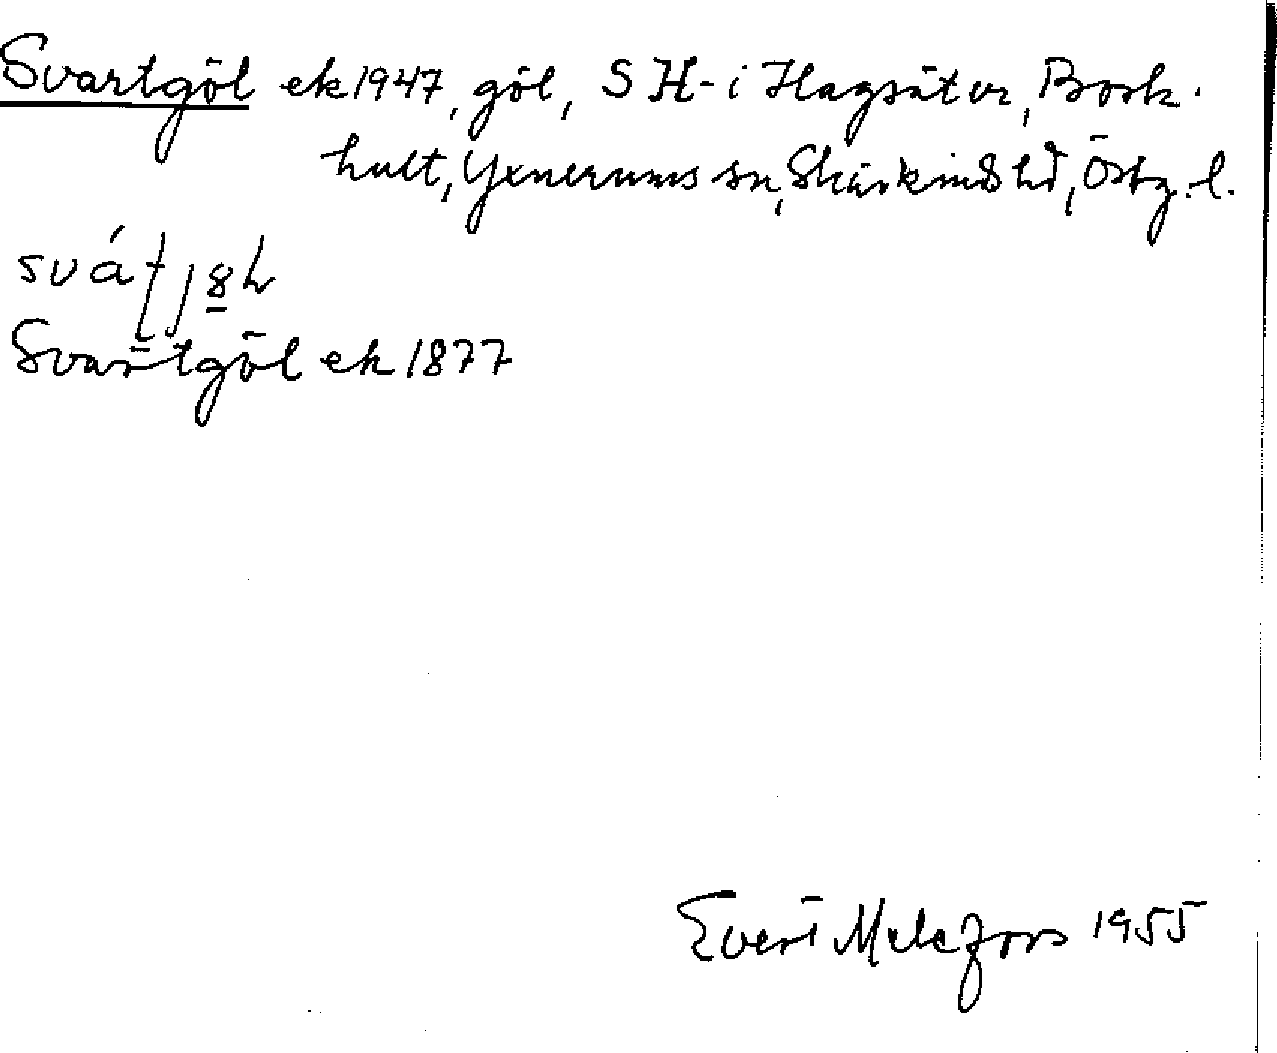 Svartgöl ek 1947, göl, S H- i Hagsäter, Bork-
hult, Yxnerums sn, Skärkinds hd, Östg. l.
Svartgöl ek 1877
Evert Melefors 1955